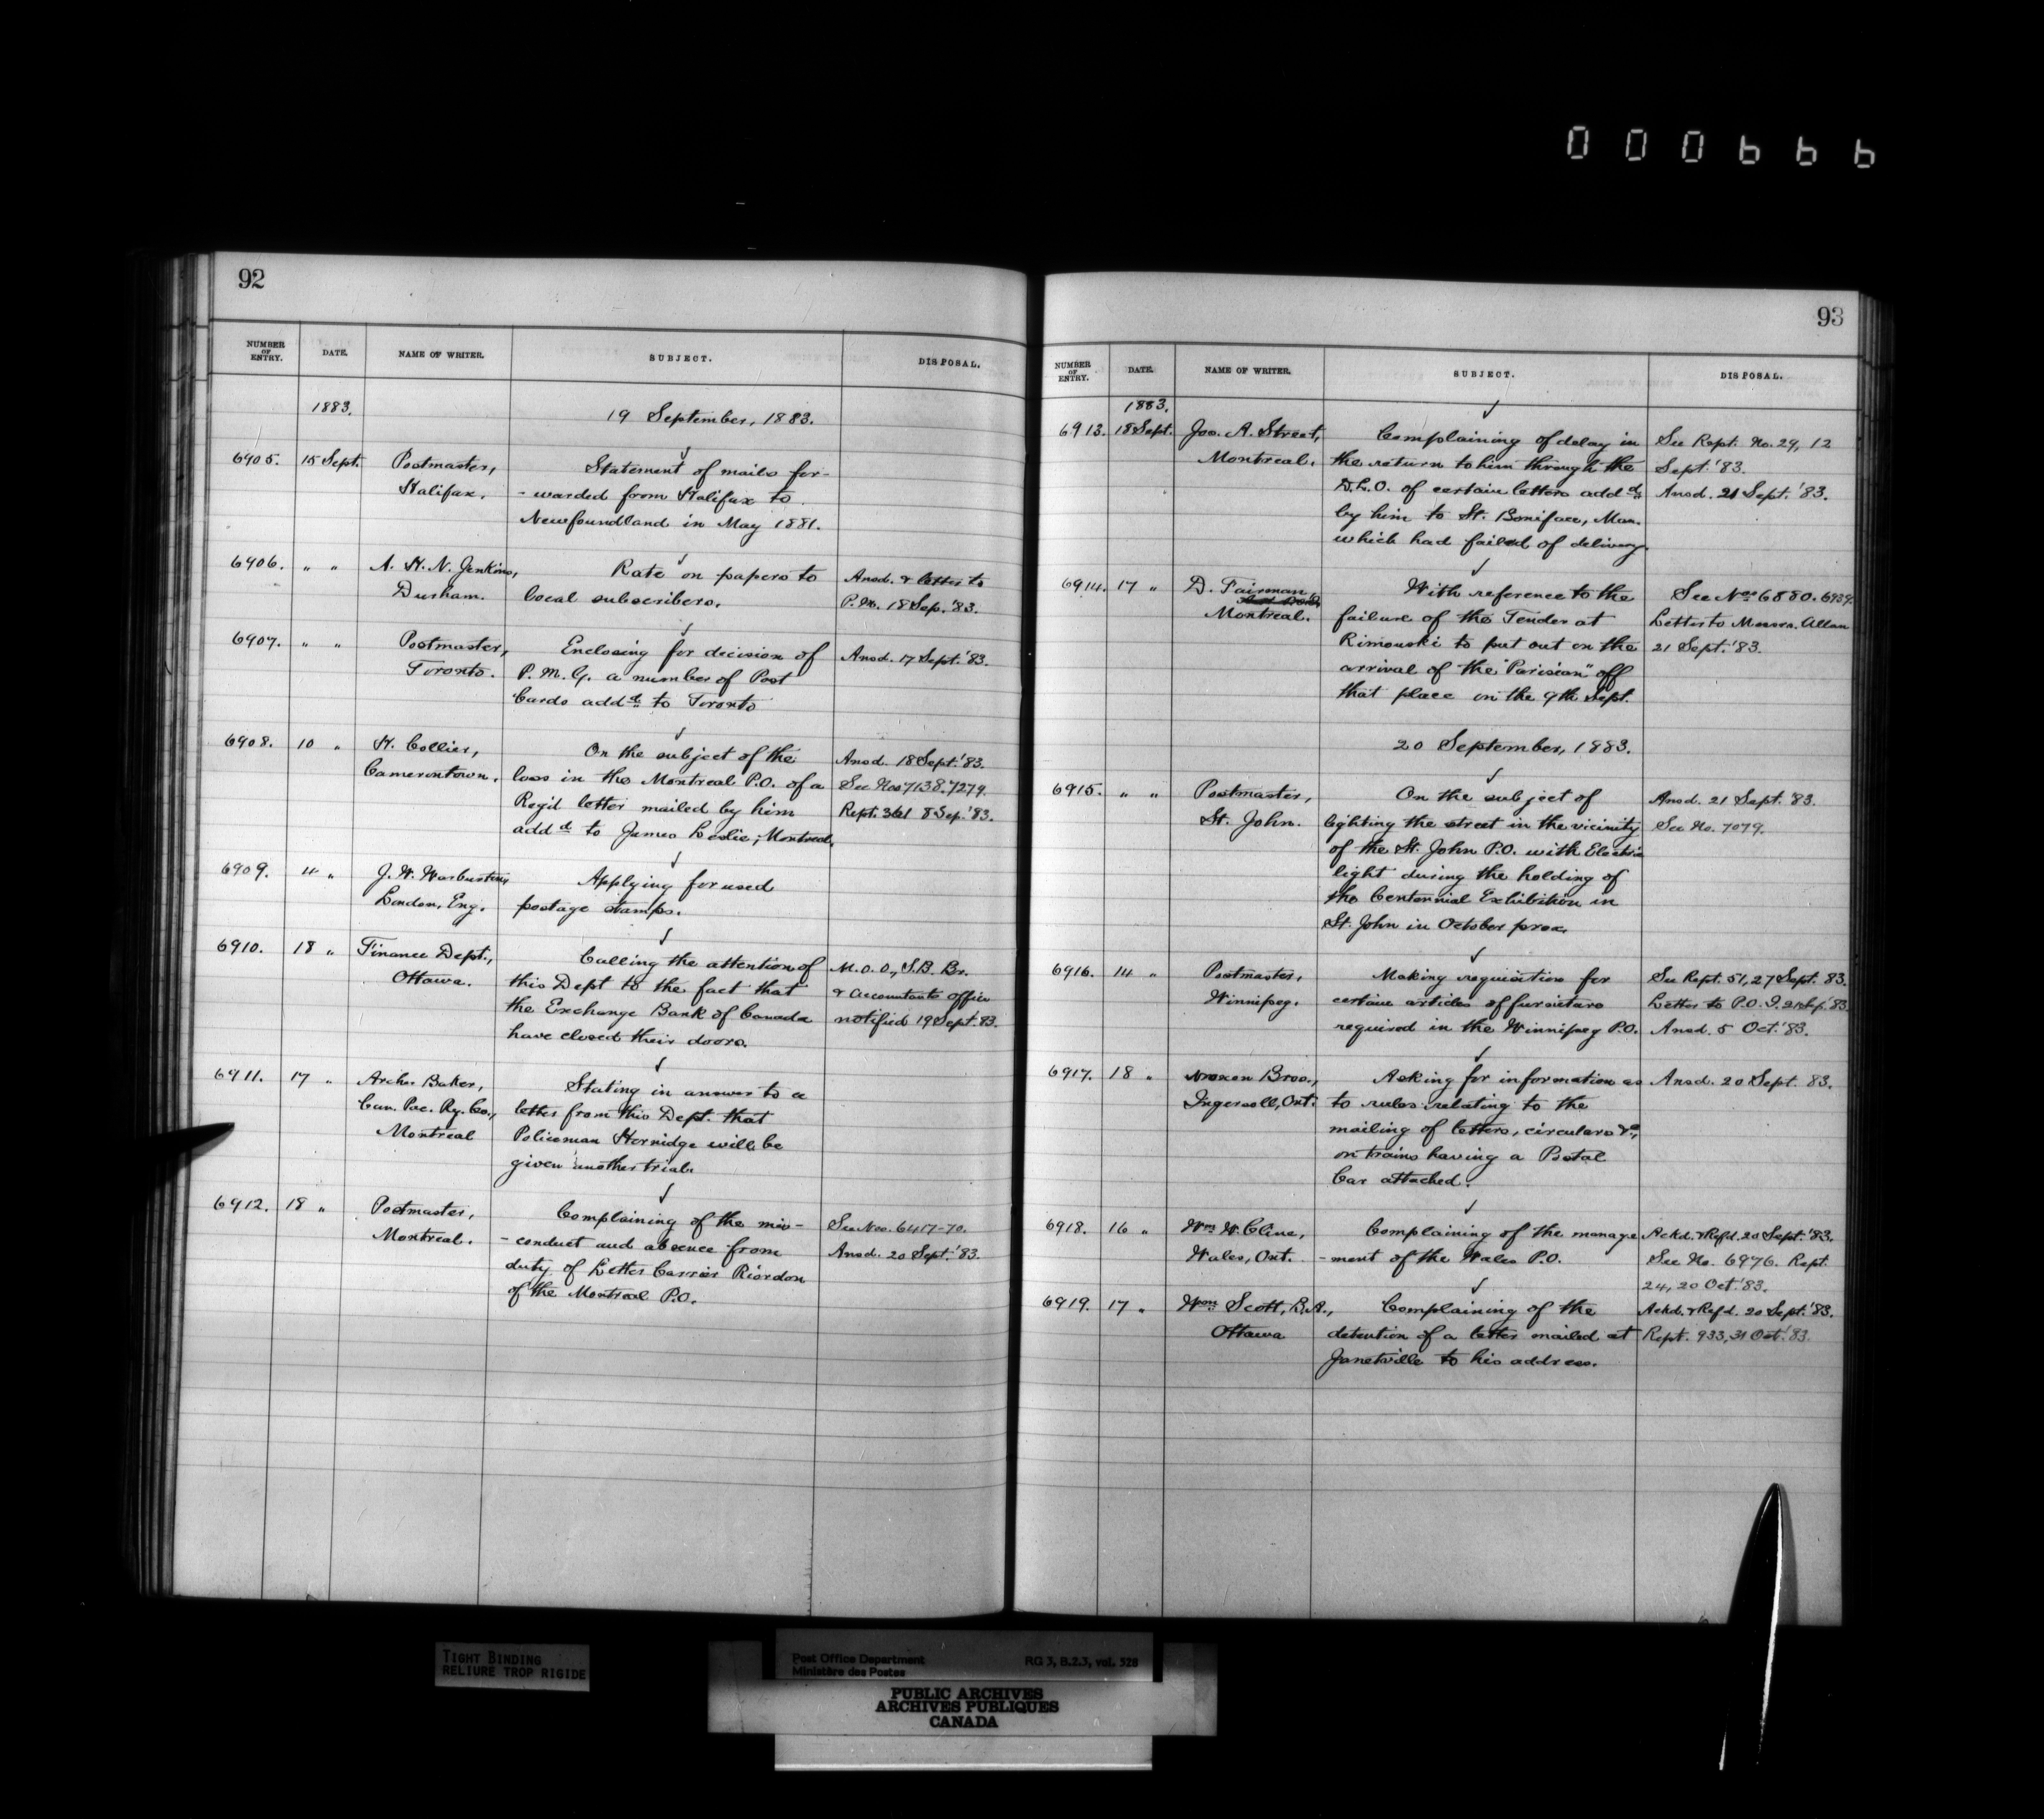 000666
92
NUMBER OF ENTRY. DATE. NAME OF WRITER. SUBJECT. DISPOSAL.
1883. 19 September, 1883.
6905. 15 Sept. Postmaster, Statement of mails for-
Halifax. -warded from Halifax to
Newfoundland in May 1881.
6906. " " A. H. N. Jenkins, Rate on papers to Ansd. & letter to
Durham. local subscribers. P.M. 18 Sep. '83.
6907. " " Postmaster, Enclosing for decision of Ansd. 17 Sept. '83.
Toronto. P. M. G. a number of Post
Cards addd. to Toronto
6908. 10 " H. Collier, On the subject of the Ansd. 18 Sept. '83.
Camerontown. loss in the Montreal P.O. of a See Nos 7138. 7279.
Reg'd letter mailed by him Rept. 361 8 Sep. '83.
addd. to James Leslie, Montreal.
6909. 4 " J. W. Warburton, Applying for used
London, Eng. postage stamps.
6910. 18 " Finance Dept., Calling the attention of M.O.O., S.B. Br.
Ottawa. this Dept to the fact that & Accountants office
the Exchange Bank of Canada notified 19 Sept. 83.
have closed their doors.
6911. 17 " Archr. Baker, Stating in answer to a
Can. Pac. Ry. Co., letter from this Dept. that
Montreal Policeman Hornidge will be
given another trial.
6912. 18 " Postmaster, Complaining of the mis- See Nos. 6417-70.
Montreal. -conduct and absence from Ansd. 20 Sept. '83.
duty of Letter Carrier Riordon
of the Montreal P.O.
93
NUMBER OF ENTRY. DATE. NAME OF WRITER. SUBJECT. DISPOSAL.
1883.
6913. 18 Sept. Jos. A. Street, Complaining of delay in See Rept. No. 29, 12
Montreal. the return to him through the Sept. '83.
D.L.O. of certain letters addd. Ansd. 21 Sept. '83.
by him to St. Boniface, Man.
which had failed of delivery.
6914. 17 " D. Fairman, With reference to the See Nos 6880. 6939.
Montreal. failure of the Tender at Letter to Messrs. Allan
Rimouski to put out on the 21 Sept. '83.
arrival of the "Parisian" off
that place on the 9th Sept.
20 September, 1883.
6915. " " Postmaster, On the subject of Ansd. 21 Sept. '83.
St. John. lighting the street in the vicinity See No. 7079.
of the St. John P.O. with Electric
light during the holding of
the Centennial Exhibition in
St. John in October prox.
6916. 14 " Postmaster, Making requisition for See Rept. 51, 27 Sept. 83.
Winnipeg. certain articles of furniture Letter to P.O.I. 21 Sep. '83.
required in the Winnipeg P.O. Ansd. 5 Oct. '83.
6917. 18 " Bros., Asking for information as Ansd. 20 Sept. 83.
Ingersoll, Ont. to rules relating to the
mailing of letters, circulars &c,
on trains having a Postal
Car attached.
6918. 16 " Wm. W. Cline, Complaining of the manage Ackd. & Refd. 20 Sept. '83.
Wales, Ont. -ment of the Wales P.O. See No. 6976. Rept.
24, 20 Oct. '83.
6919. 17 " Wm. Scott, B.A., Complaining of the Ackd. & Refd. 20 Sept. '83.
Ottawa detention of a letter mailed at Rept. 933, 31 Oct. '83.
Janetville to his address.
TIGHT BINDING
RELIURE TROP RIGIDE
Post Office Department RG 3, B.2.3, vol. 528
Ministère des Postes
PUBLIC ARCHIVES
ARCHIVES PUBLIQUES
CANADA